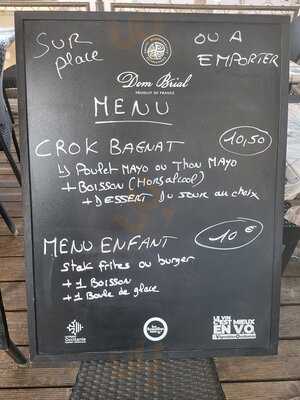 SUR place
OU A EMPORTER
Dom Brial
PRODUIT DE FRANCE
MENU
CROK BAGNAT 10,50
↳ Poulet MAYO ou Thon MAYO
+ Boisson (HORS alcool)
+ DESSERT Du Jour au choix
MENU ENFANT 10 €
stek frites ou burger
+ 1 Boisson
+ 1 Boule de glace
Occitanie
LE VIN
C'EST MIEUX
EN VO